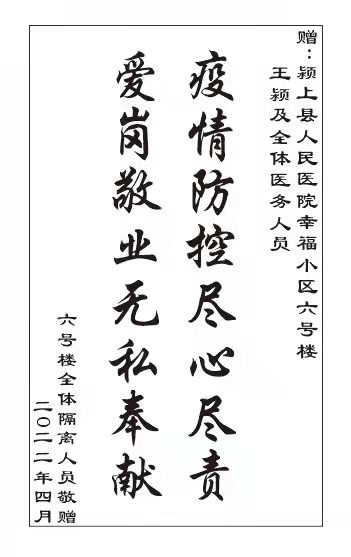 赠：颍上县人民医院幸福小区六号楼
王颍及全体医务人员
疫情防控尽心尽责
爱岗敬业无私奉献
六号楼全体隔离人员敬赠
二〇二二年四月